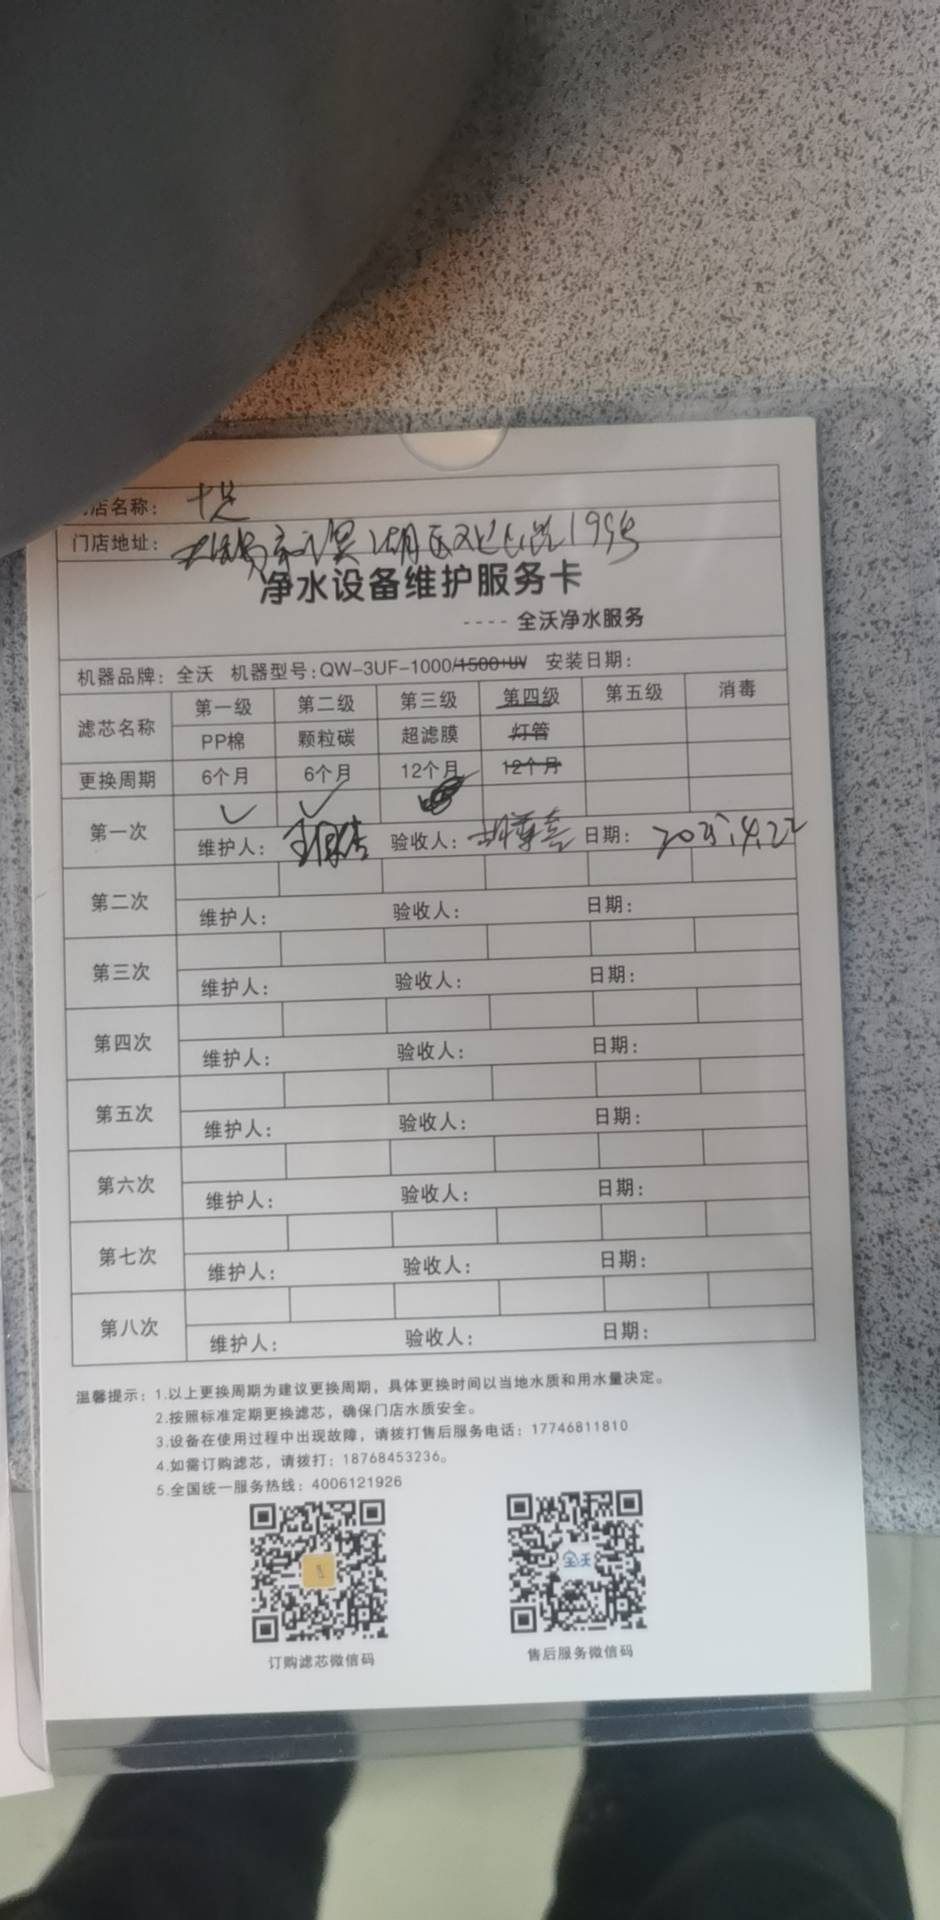 店名称： 十足
门店地址： 无锡市滨湖区
净水设备维护服务卡
---- 全沃净水服务
机器品牌：全沃 机器型号:QW-3UF-1000/1500+UV 安装日期：
滤芯名称 第一级 第二级 第三级 第四级 第五级 消毒
PP棉 颗粒碳 超滤膜 灯管
更换周期 6个月 6个月 12个月 12个月
第一次 ✓ ✓
维护人： 验收人： 日期： 2025.4.22
第二次
维护人： 验收人： 日期：
第三次
维护人： 验收人： 日期：
第四次
维护人： 验收人： 日期：
第五次
维护人： 验收人： 日期：
第六次
维护人： 验收人： 日期：
第七次
维护人： 验收人： 日期：
第八次
维护人： 验收人： 日期：
温馨提示：1.以上更换周期为建议更换周期，具体更换时间以当地水质和用水量决定。
2.按照标准定期更换滤芯，确保门店水质安全。
3.设备在使用过程中出现故障，请拨打售后服务电话：17746811810
4.如需订购滤芯，请拨打：18768453236。
5.全国统一服务热线：4006121926
全沃
订购滤芯微信码 售后服务微信码